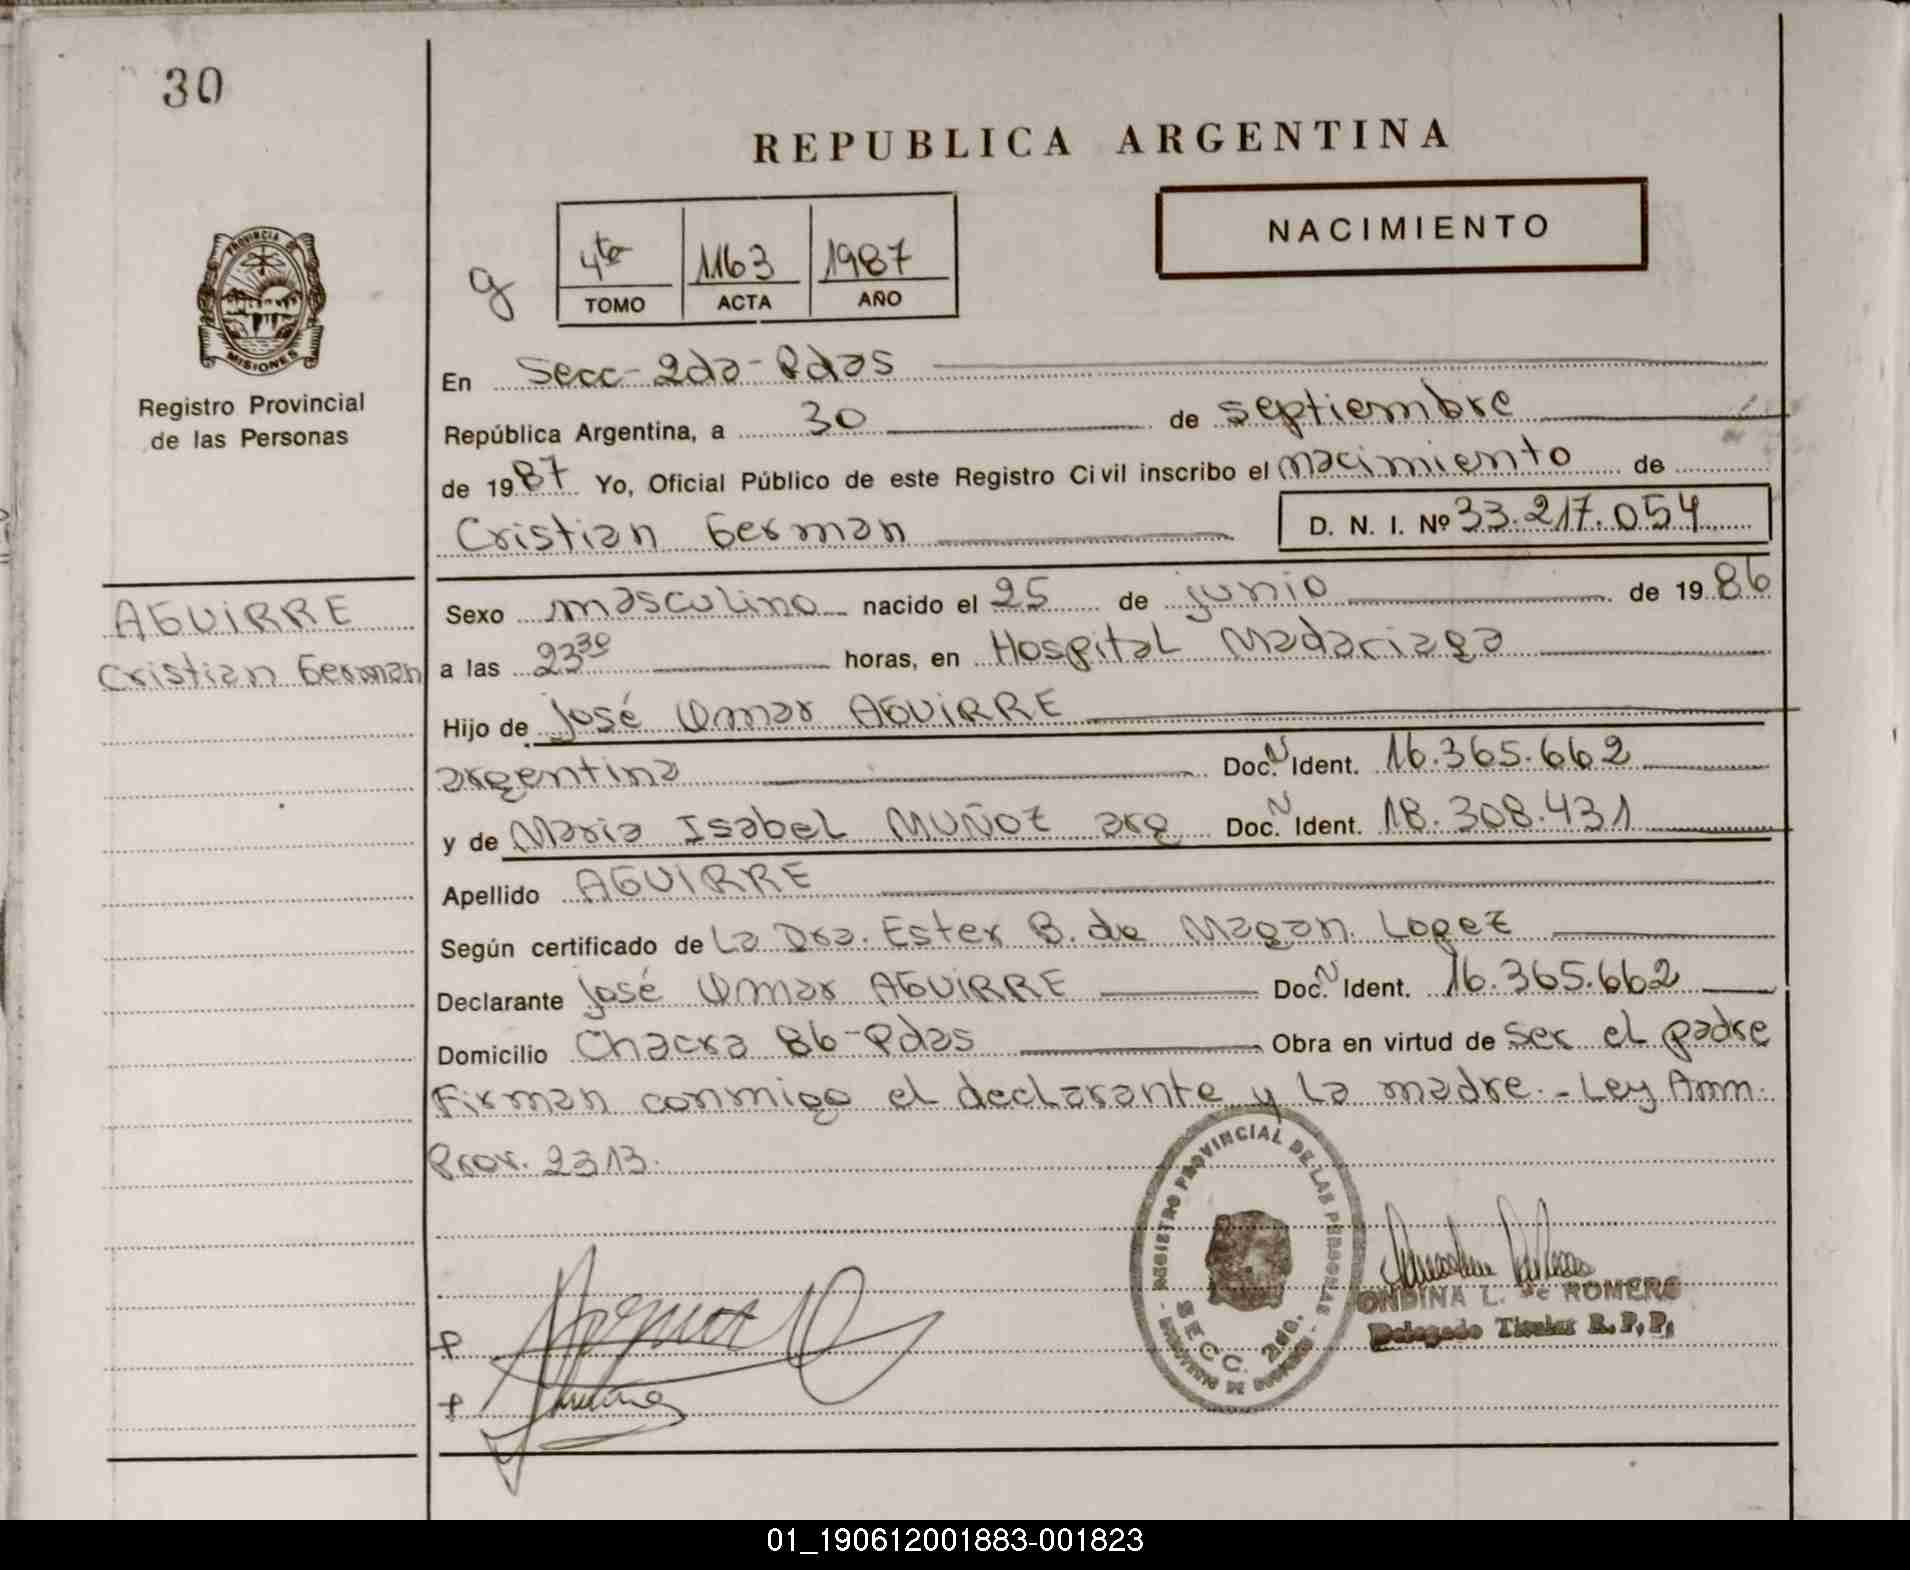 30
REPUBLICA ARGENTINA
NACIMIENTO
4to 1163 1987
TOMO ACTA AÑO
g
PROVINCIA DE
MISIONES
Registro Provincial
de las Personas
En Secc-2da-Pdas
República Argentina, a 30 de septiembre
de 1987 Yo, Oficial Público de este Registro Civil inscribo el nacimiento de
Cristian German D. N. I. Nº 33.217.054
AGUIRRE
Cristian German
Sexo masculino nacido el 25 de junio de 1986
a las 23 30 horas, en Hospital Madariaga
Hijo de José Omar AGUIRRE
argentina Doc. N Ident. 16.365.662
y de Maria Isabel MUÑOZ arg Doc. N Ident. 18.308.431
Apellido AGUIRRE
Según certificado de La Dra. Ester B. de Magan Lopez
Declarante José Omar AGUIRRE Doc. N Ident. 16.365.662
Domicilio Chacra 86-Pdas Obra en virtud de ser el padre
Firman conmigo el declarante y la madre.- Ley Amn.
Prov. 2313.
REGISTRO PROVINCIAL DE LAS PERSONAS
SECC. 2da.
ONDINA L. de ROMERO
Delegado Titular R. P. P.
01_190612001883-001823